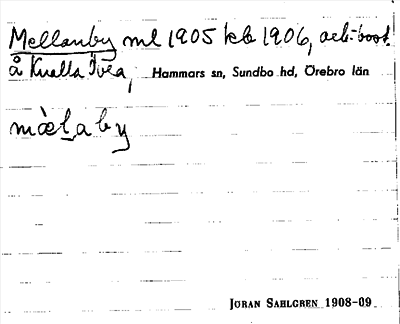 Mellanby ml 1905 kb 1906,
å Knalla Hammars sn, Sundbo hd, Örebro län
mὲlaby
JÖRAN SAHLGREN 1908-09